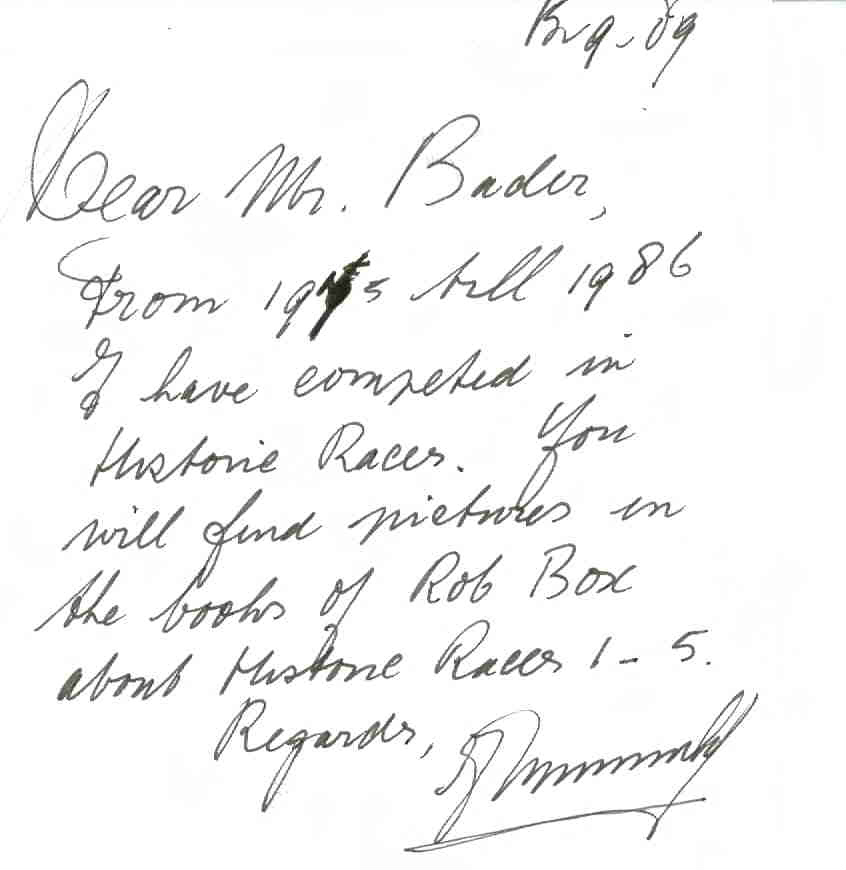 9-09
Dear Mr. Bader,
From 1975 till 1986
I have competed in
Historic Races. You
will find pictures in
the books of Rob Box
about Historic Races 1-5.
Regards,